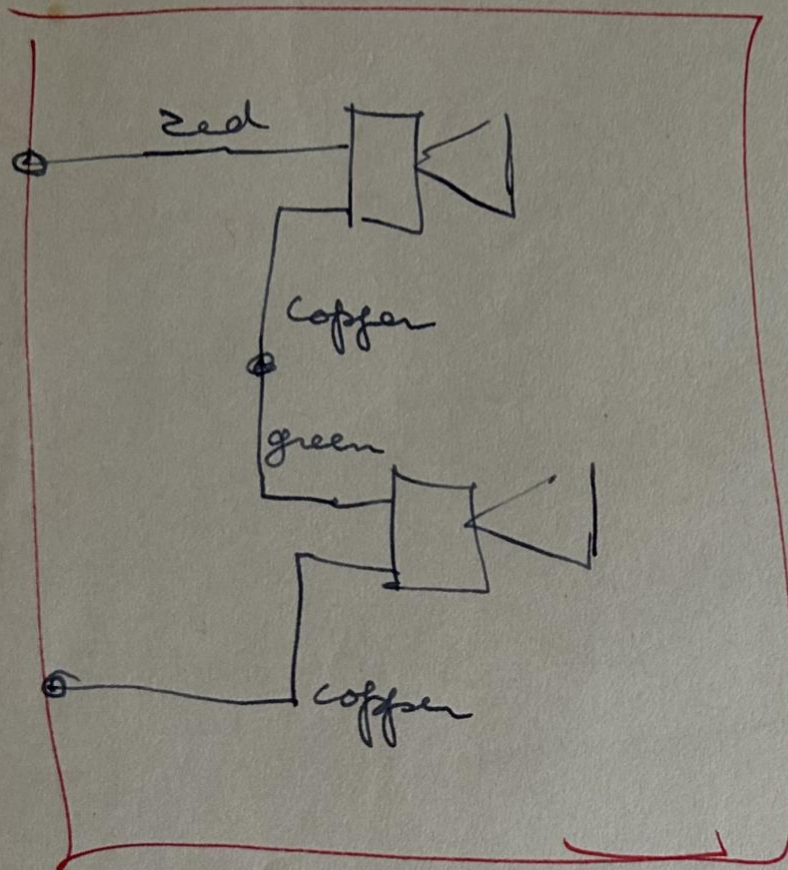 red
copper
green
copper